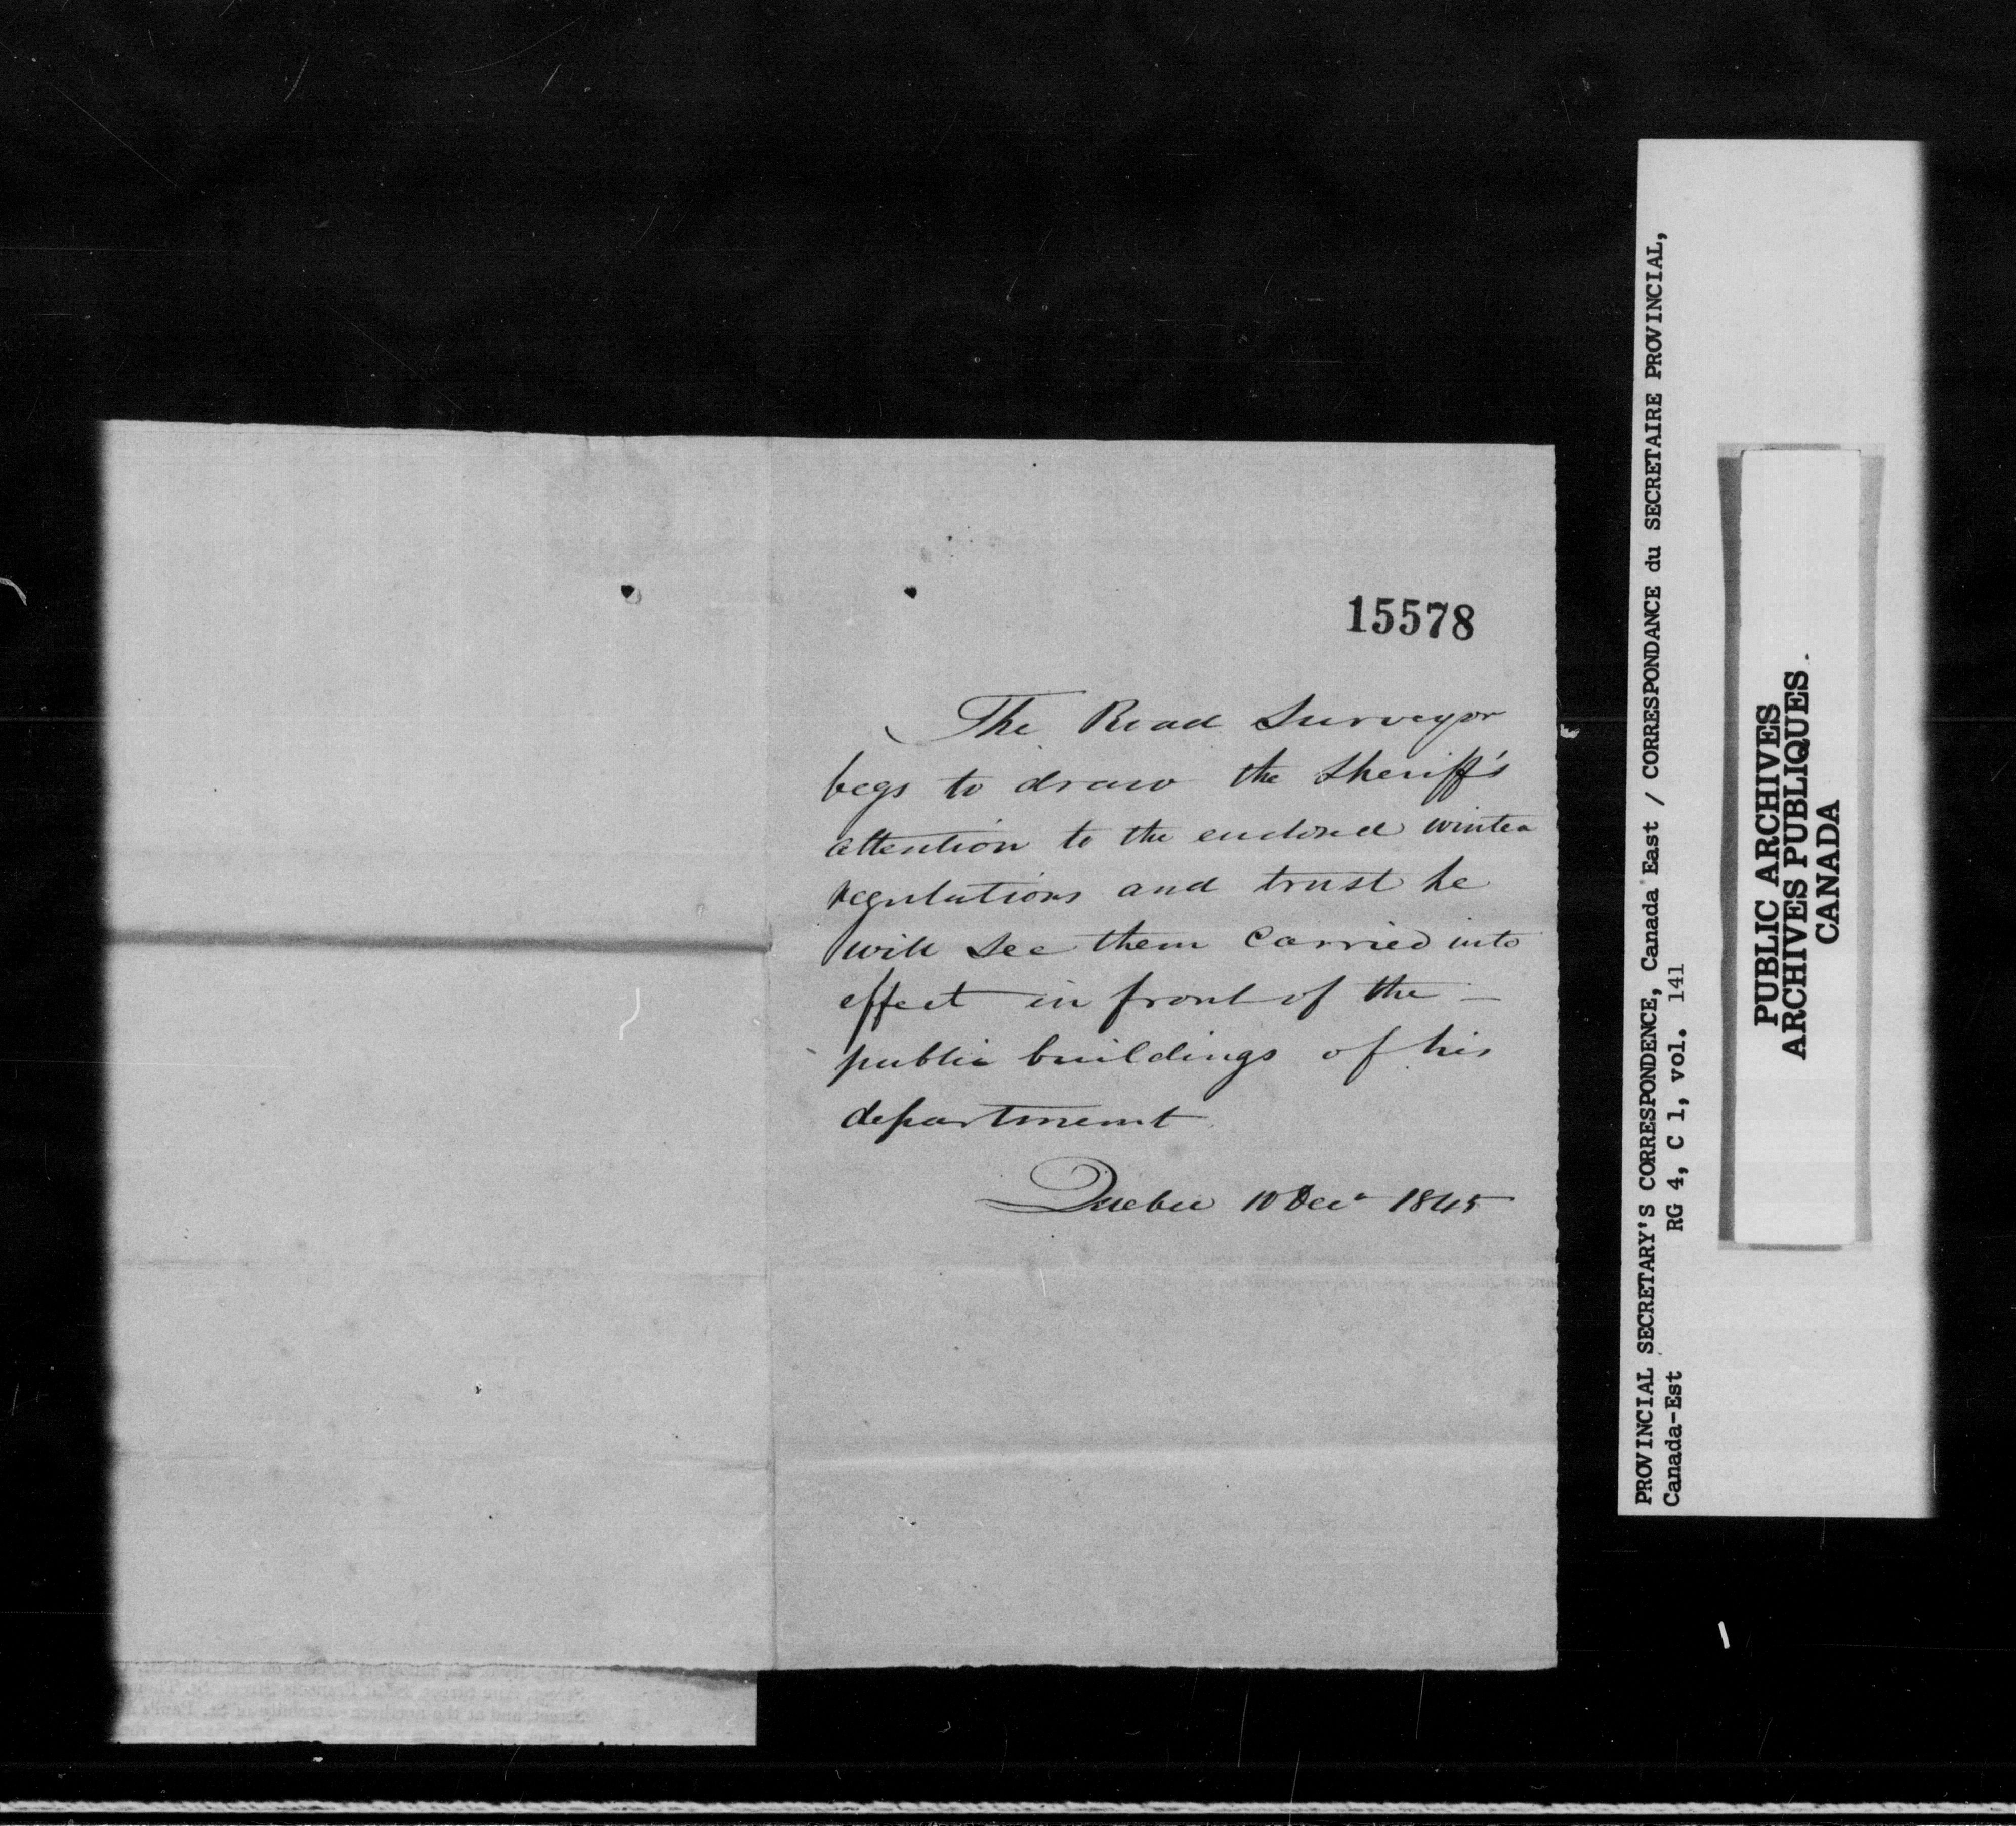 15578
The Road Surveyor
begs to draw the Sheriff's
attention to the enclosed winter
regulations and trust he
will see them carried into
effect in front of the —
public buildings of his
department
Quebec 10 Decr 1845
PROVINCIAL SECRETARY'S CORRESPONDENCE, Canada East / CORRESPONDANCE du SECRETAIRE PROVINCIAL,
Canada-Est RG 4, C 1, vol. 141
PUBLIC ARCHIVES
ARCHIVES PUBLIQUES
CANADA